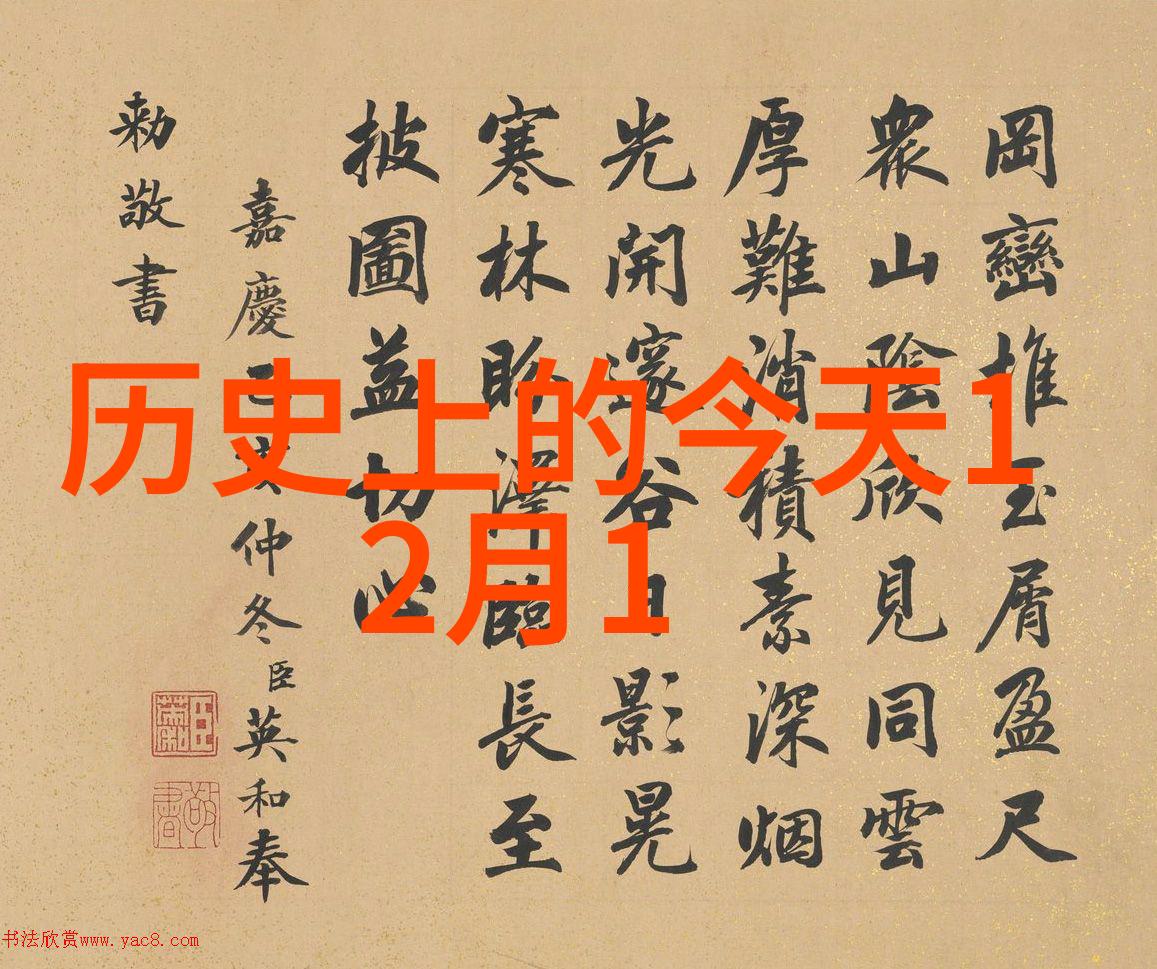 岡巒堆玉屑盈尺
衆山陰欣見同雲
厚難消積素深烟
光開邃谷日影晃
寒林盼澤臨長至
披圖益切心
嘉慶仲冬臣英和奉
勅敬書
敬書
历史上的今天1
2月1
书法欣赏www.yac8.com